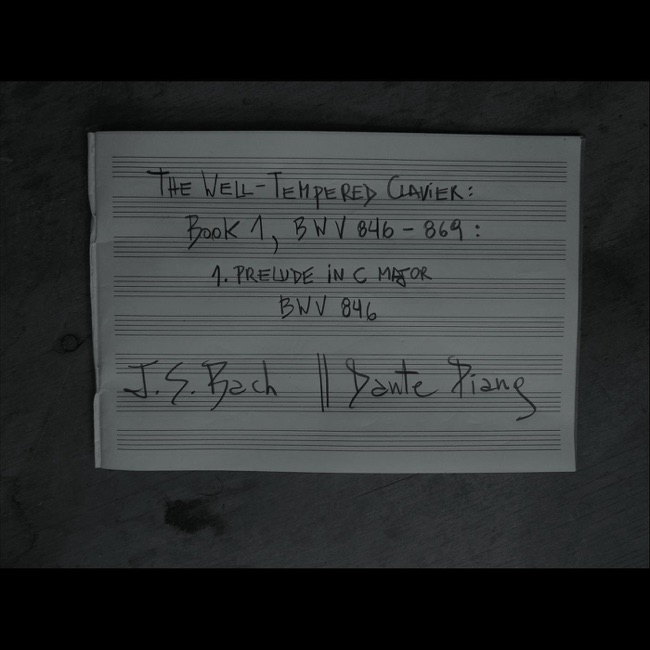 THE WELL-TEMPERED CLAVIER:
BOOK 1, BWV 846 - 869:
1. PRELUDE IN C MAJOR
BWV 846
J. S. Bach || Dante Piang